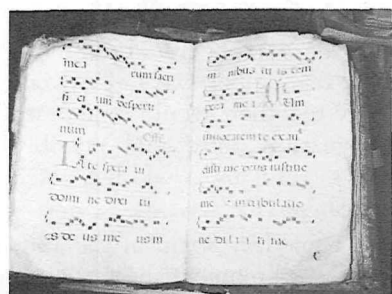 mea rum sacri
fi ci um vesperti
num
In te spera vi
domi ne dixi tu
es de us me us in
ma nibus tu is tem
pora me a Cum
invocarem te exau
disti me deus iustitie
me e in tribulatio
ne di la ta sti me